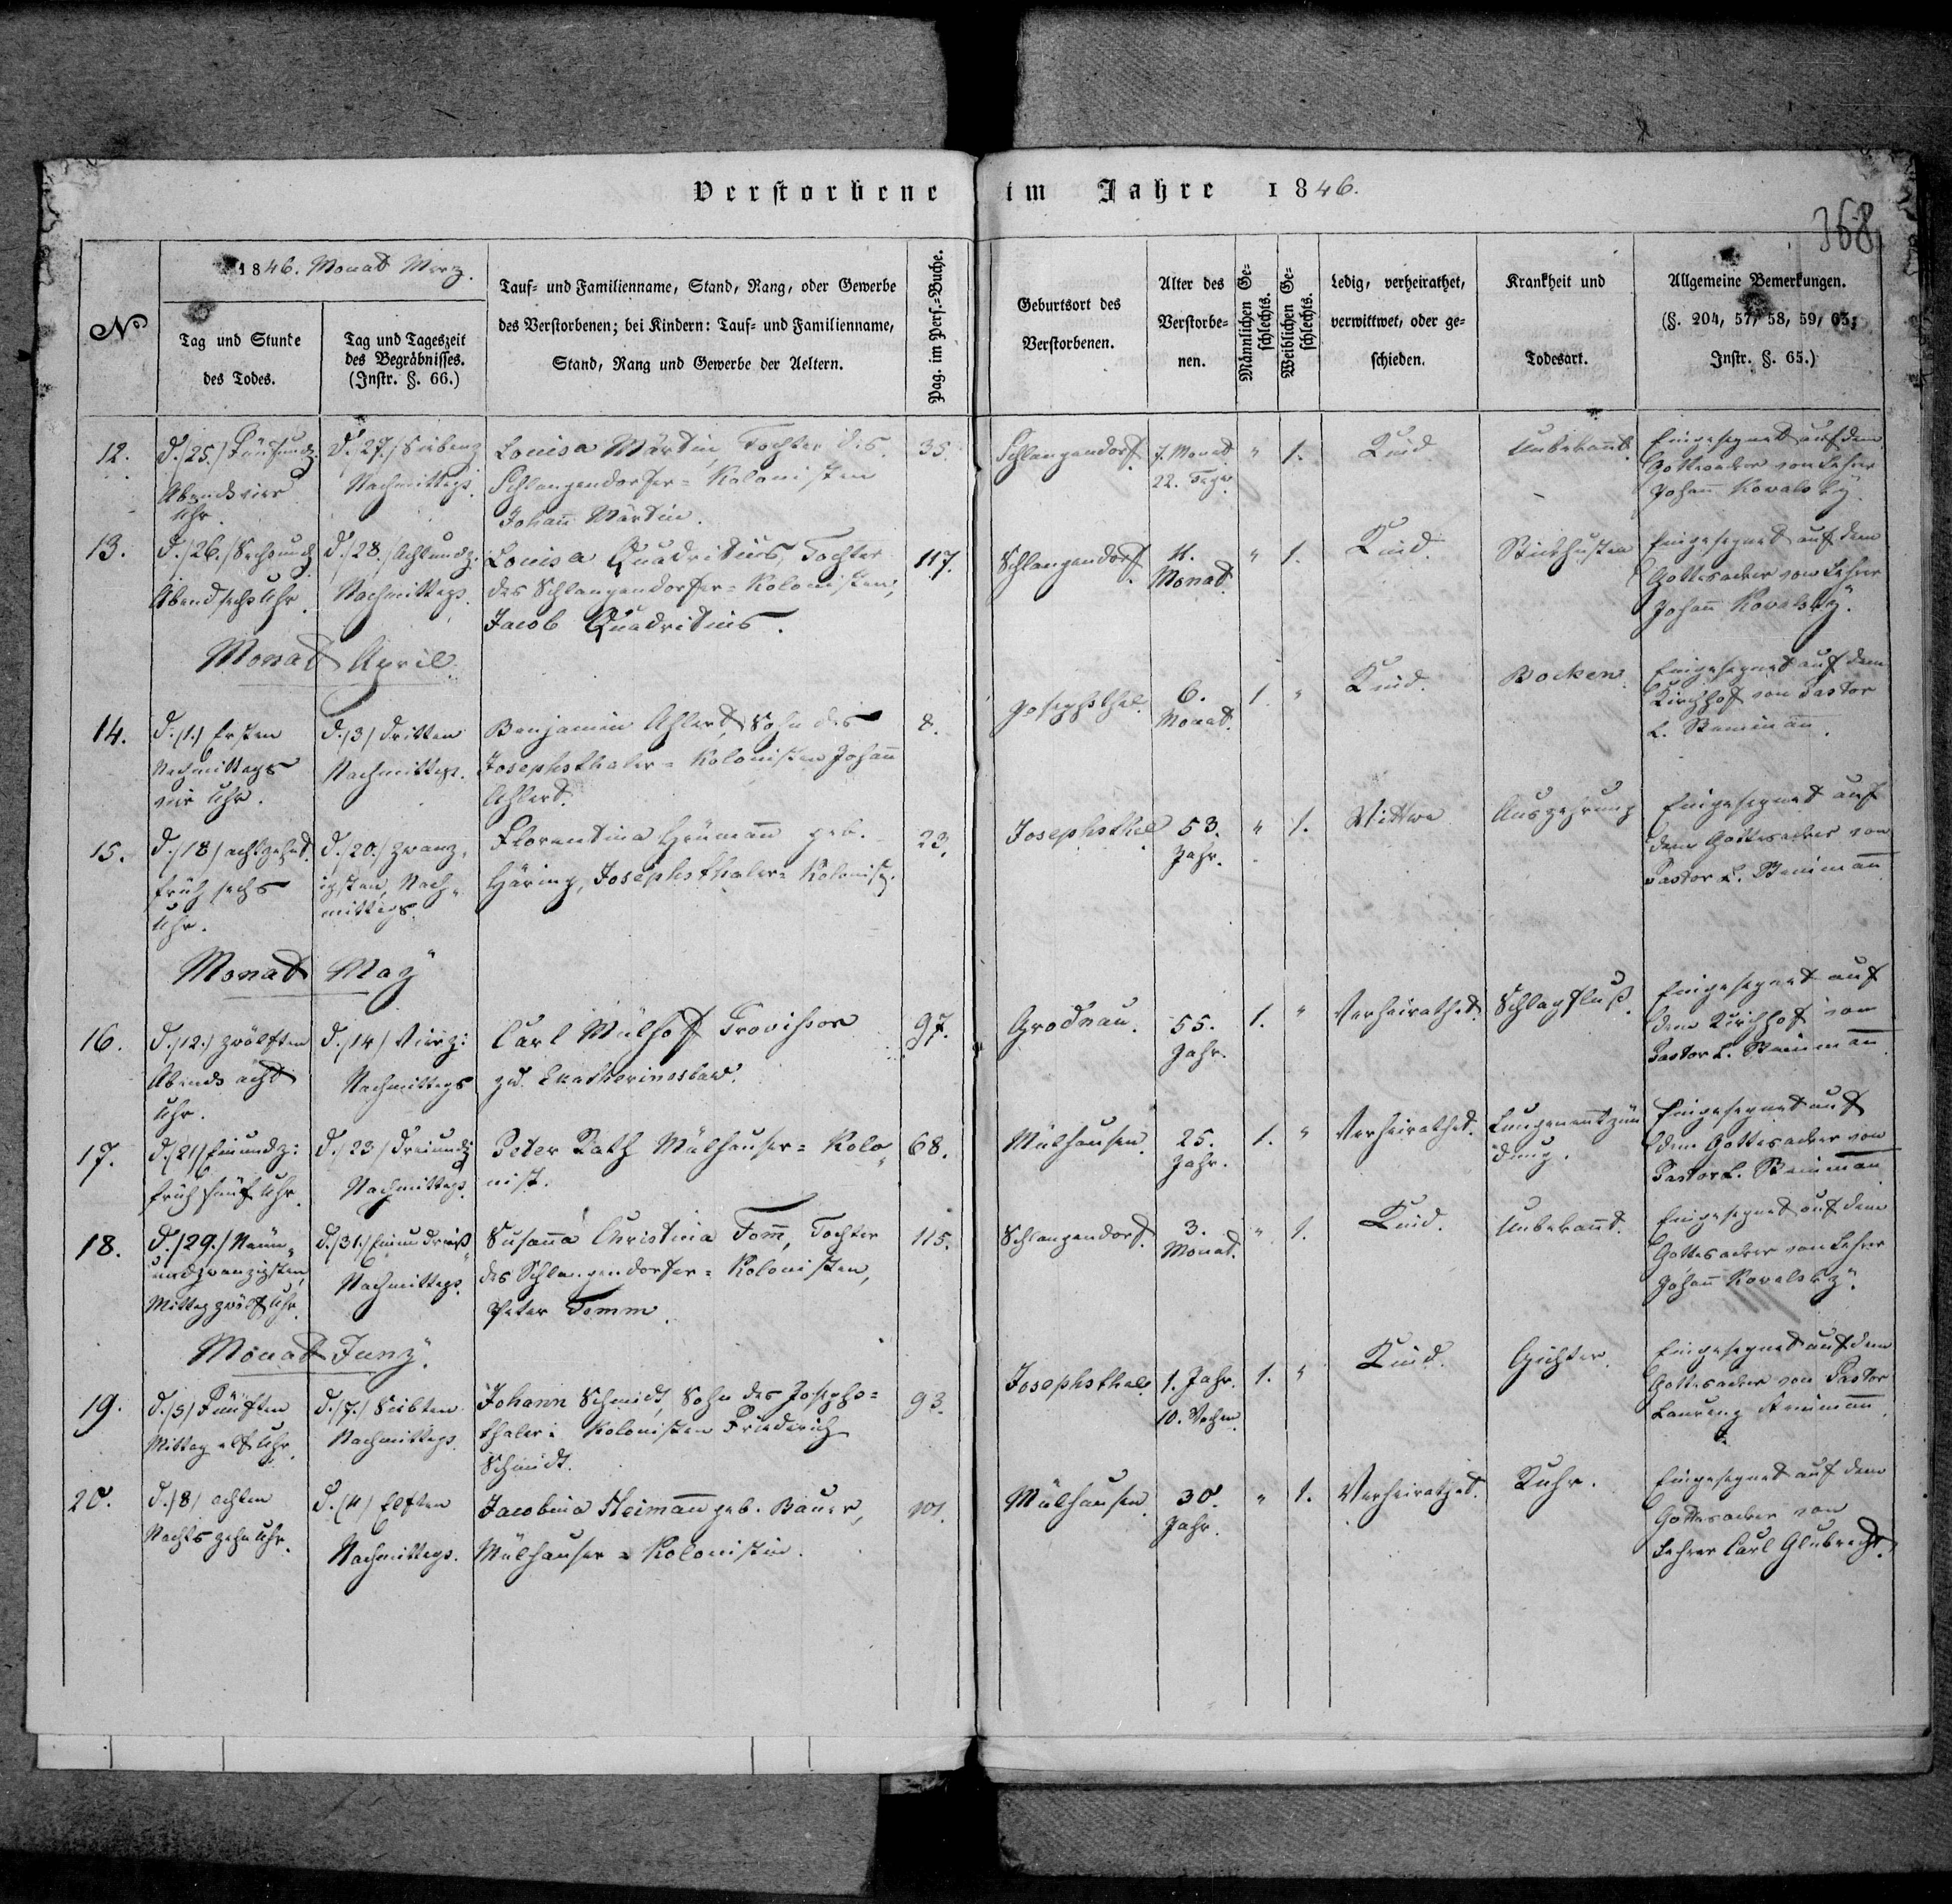 Verstorbene im Jahre 1846.
368
№
1846. Monat Merz.
Tag und Stunde
des Todes.
Tag und Tageszeit
des Begräbnisses.
(Instr. §. 66.)
Tauf- und Familienname, Stand, Rang, oder Gewerbe
des Verstorbenen; bei Kindern: Tauf- und Familienname,
Stand, Rang und Gewerbe der Aeltern.
Pag. im Pers.-Buche.
Geburtsort des
Verstorbenen.
Alter des
Verstorbe-
nen.
Männlichen Ge-
schlechts.
Weiblichen Ge-
schlechts.
Ledig, verheirathet,
verwittwet, oder ge-
schieden.
Krankheit und
Todesart.
Allgemeine Bemerkungen.
(§. 204, 57, 58, 59, 63,
Instr. §. 65.)
12.
d. /25./ Fünfundz.
Abends vier
Uhr.
d. /27./ Siebenz
Nachmittags.
Louisa Märtin, Tochter des
Schlangendorfer- Kolonisten
Johañ Märtin.
35.
Schlangendorf.
7. Monat
22. Tage.
" 1.
Kind.
Unbekañt.
Eingesegnet auf dem
Gottesacker von Lehrer
Johañ Kovalsky.
13.
d. /26./ Sechsundz
Abend sechs Uhr.
d. /28./ Achtundz.
Nachmittags.
Louisa Quadritius, Tochter
des Schlangendorfer- Kolonisten,
Jacob Quadritius.
117.
Schlangendorf.
Monat.
" 1.
Kind.
Stickhusten
Eingesegnet auf dem
Gottesacker von Lehrer
Johañ Kovalsky.
Monat April.
14.
d. /1./ Ersten
Nachmittags
vier Uhr.
d. /3/ dritten
Nachmittags.
Benjamin Ahlert, Sohn des
Josephsthaler- Kolonisten Johañ
Ahlert.
8.
Josephsthal.
6.
Monat.
1. "
Kind.
Pocken.
Eingesegnet auf dem
Kirchhof von Pastor
L. Steinmañ.
15.
d. /18/ achtzehnt.
früh sechs
Uhr.
d. /20./ zwanz-
igsten, Nach-
mittags.
Florentina Heümañ geb.
Häring, Josephsthaler- Kolonist.
23.
Josephsthal
53.
Jahr.
" 1.
Wittwe
Auszehrung
Eingesegnet auf
dem Gottesacker von
Pastor L. Steinmañ
Monat May
16.
d. /12./ zwölften
Abends acht
Uhr.
d. /14/ Vierz:
Nachmittags
Carl Mülhof Provisor
zu Ekatherinoslaw.
97.
Grodnau.
55.
Jahr.
1. "
Verheirathet.
Schlagfluß.
Eingesegnet auf
dem Kirchhof von
Pastor L. Steinmañ
17.
d. /21/ Einundz:
früh fünf Uhr.
d. /23/ Dreiundz
Nachmittags.
Peter Rath Mülhauser- Kolo-
nist.
68.
Mülhausen.
25.
Jahr.
1. "
Verheirathet.
Lungenentzün
dung.
Eingesegnet auf
dem Gottesacker von
Pastor L. Steinmañ
18.
d. /29./ Neün-
undzwanzigsten,
Mittag zwölf Uhr.
d. /31./ Einundreiß
Nachmittags.
Susaña Christina Tom̄, Tochter
des Schlangendorfer- Kolonisten,
Peter Tomm.
115.
Schlangendorf.
3.
Monat.
" 1.
Kind.
Unbekañt.
Eingesegnet auf dem
Gottesacker von Lehrer
Johañ Kovalsky.
Monat Juny.
19.
d. /5/ Fünften
Mittag elf Uhr.
d. /7./ Siebten
Nachmittags.
Johann Schmidt, Sohn des Josephs-
thaler: Kolonisten Friederich
Schmidt.
93.
Josephsthal.
1. Jahr.
10. Wochen
1. "
Kind.
Gichter.
Eingesegnet auf dem
Gottesacker von Pastor
Laurenz Steinmañ.
20.
d. /8/ achten
Nachts zehn Uhr.
d. (11) Elften
Nachmittags.
Jacobina Heimañ geb. Bauer,
Mülhauser- Kolonistin.
101.
Mülhausen.
30.
Jahr.
" 1.
Verheirathet.
Ruhr.
Eingesegnet auf dem
Gottesacker von
Lehrer Carl Glubrecht.